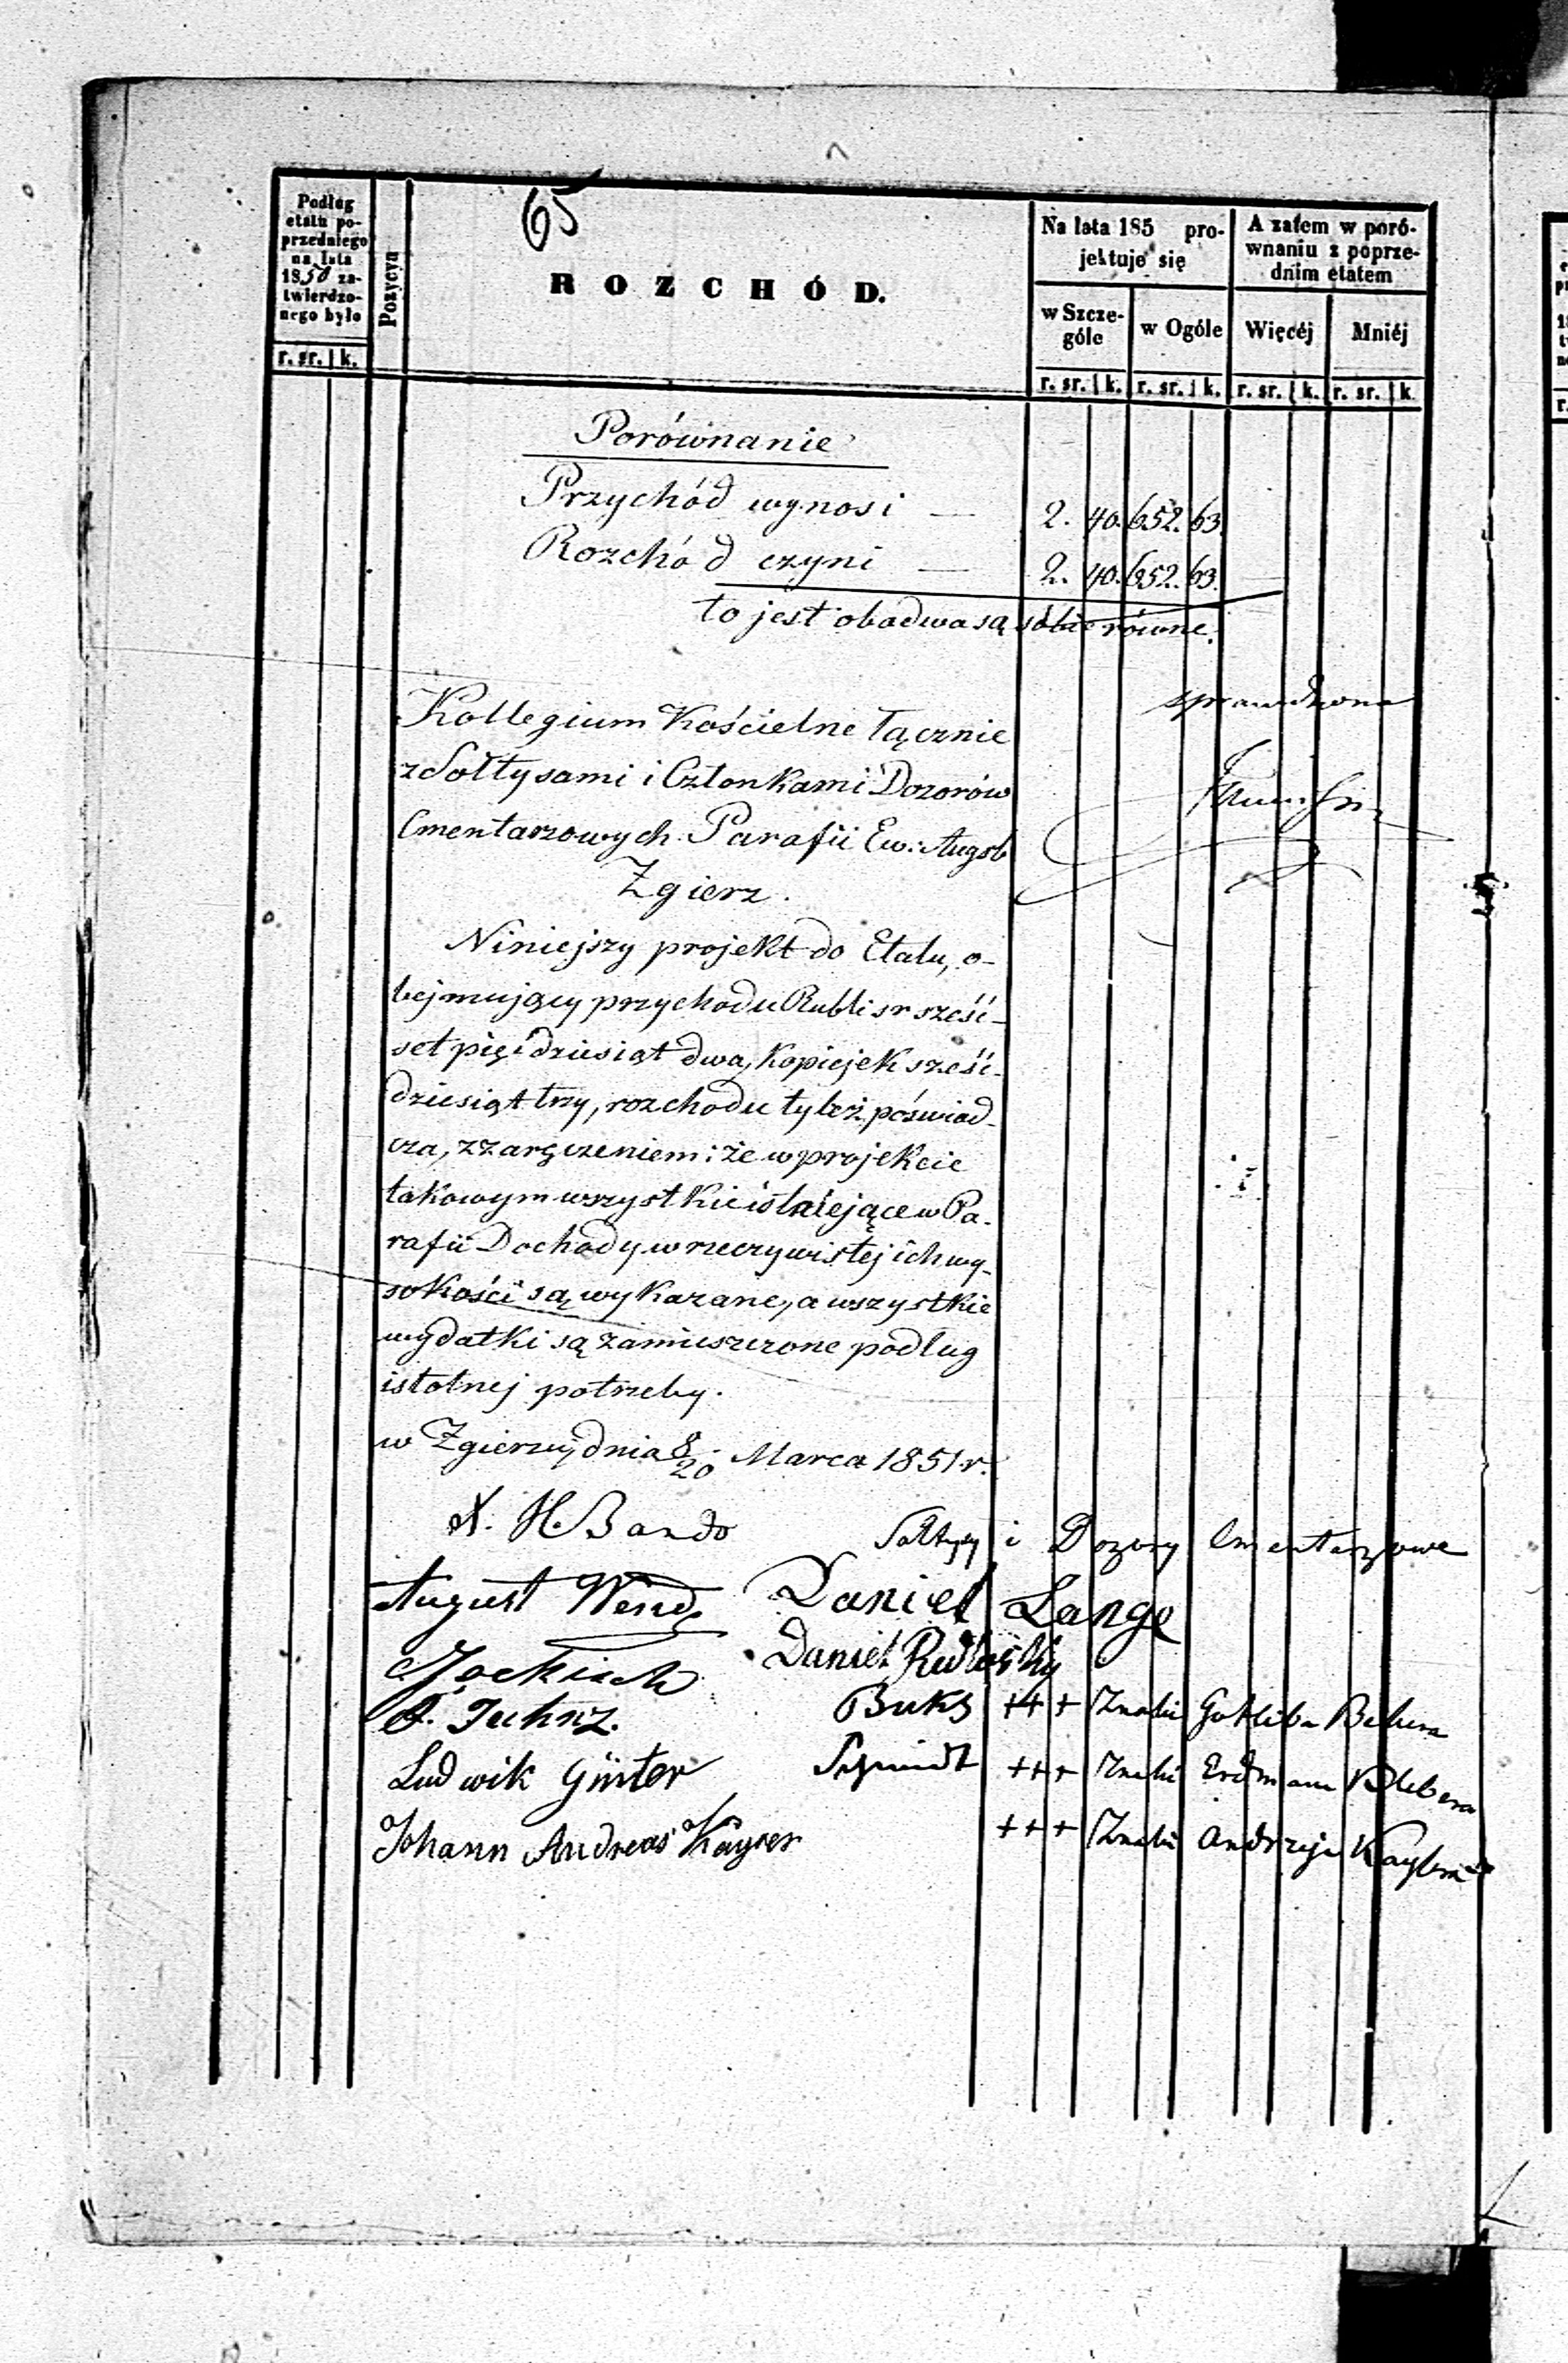 65
Podług
etatu po-
przedniego
na lata
1850 za-
twierdzo-
nego było
r. sr. k.
Pozycya
ROZCHÓD.
Na lata 185 pro-
jektuje się
w Szcze-
góle
w Ogóle
r. sr. k. r. sr. k.
A zatem w poró-
wnaniu z poprze-
dnim etatem
Więcéj Mniéj
r. sr. k. r. sr. k.
Porównanie
Przychód wynosi — 2. 40. 652. 63.
Rozchód czyni — 2. 40. 652. 63.
to jest obadwa są sobie równe.
sprawdzono
Kollegium Kościelne łącznie
z Sołtysami i Członkami Dozorów
Cmentarzowych Parafii Ew: Augsb
Zgierz.
Niniejszy projekt do Etatu, o-
bejmujący przychodu Rubli sr sześć-
set pięćdziesiąt dwa, Kopiejek sześć-
dziesiąt trzy, rozchodu tyleż, poświad-
cza, z zaręczeniem: że w projekcie
takowym wszystkie istniejące w Pa-
rafii Dochody w rzeczywistej ich wy-
sokości są wykazane, a wszystkie
wydatki są zamieszczone podług
istotnej potrzeby.
w Zgierzu, dnia 8/20 Marca 1851 r.
X. H. Bando
Sołtysy i Dozory Cmentarzowe
August Wende
Daniel Lange
Daniel
Buks +++ Znaki Gotliba
Ludwik Günter
Schmidt +++ Znaki Erdmana
+++ Znaki Andrzeja
Johann Andreas Kayser